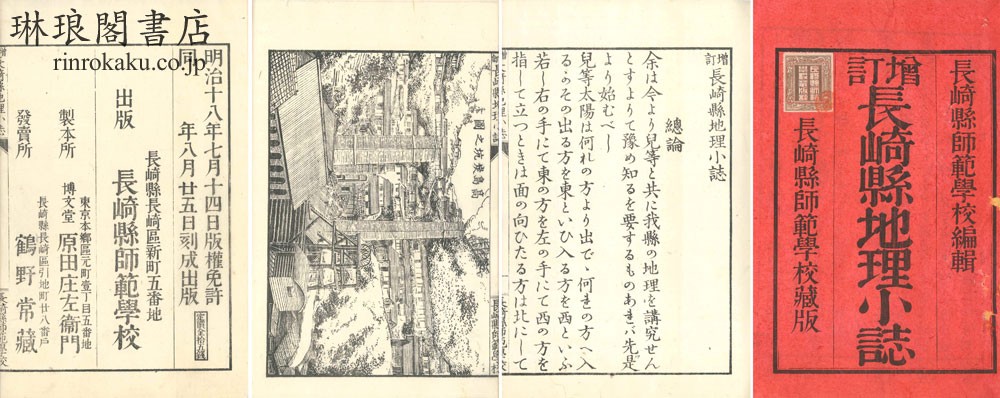 琳琅閣書店
rinrokaku.co.jp
長崎縣師範學校編輯
増訂
長崎縣地理小誌
長崎縣師範學校藏版
増訂 長崎縣地理小誌
總論
余は今より兒等と共に我縣の地理を講究せん
とすよりて豫め知るを要するものあれバ先是
より始むべし
兒等太陽は何れの方より出で、何れの方へ入
るらその出る方を東といひ入る方を西といふ
若し右の手にて東の方を左の手にて西の方を
指して立つときは面の向ひたる方は北にして
高島炭坑之圖
長崎縣師範學校
明治十八年七月十四日版權免許
同 年八月廿五日刻成出版
出版
長崎縣長崎區新町五番地
長崎縣師範學校
製本所
東京本鄉區元町壹丁目五番地
博文堂 原田庄左衞門
發賣所
長崎縣長崎區引地町廿八番戶
鶴野常藏